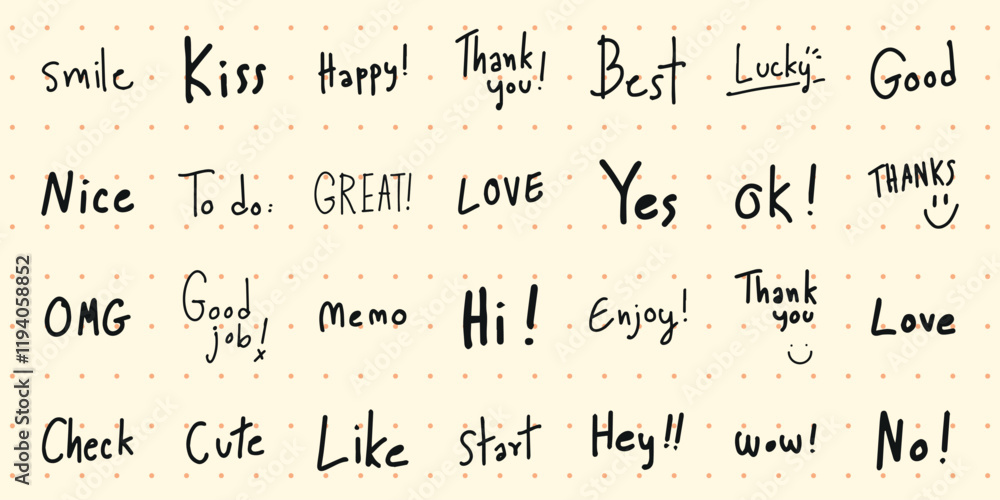 smile Kiss Happy! Thank you! Best Lucky Good
Nice To do: GREAT! LOVE Yes ok! THANKS
OMG Good job! x memo Hi! Enjoy! Thank you Love
Check Cute Like start Hey!! wow! No!
Adobe Stock | #1194058852